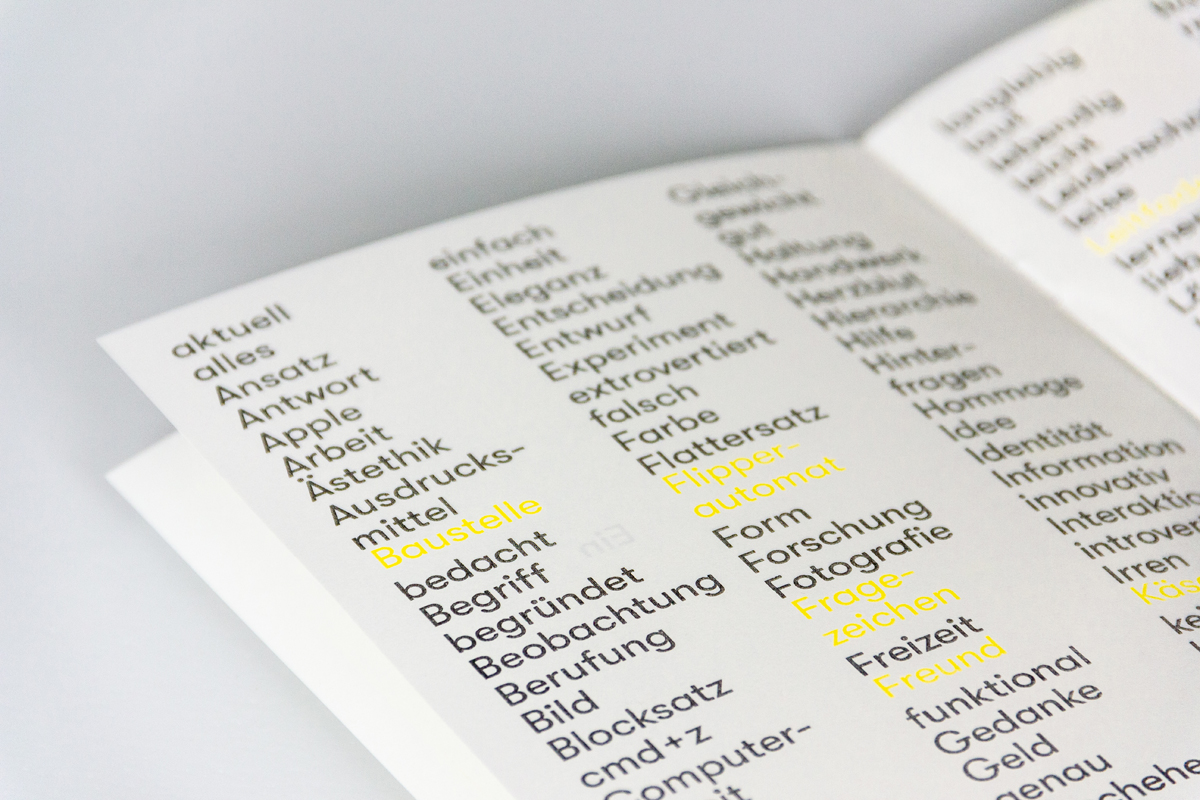 aktuell
alles
Ansatz
Antwort
Apple
Arbeit
Ästethik
Ausdrucks-
mittel
Baustelle
bedacht
Begriff
begründet
Beobachtung
Berufung
Bild
Blocksatz
cmd+z
Computer-
einfach
Einheit
Eleganz
Entscheidung
Entwurf
Experiment
extrovertiert
falsch
Farbe
Flattersatz
Flipper-
automat
Form
Forschung
Fotografie
Frage-
zeichen
Freizeit
Freund
funktional
Gedanke
Geld
genau
Gleich-
gewicht
gut
Haltung
Handwerk
Herzblut
Hierarchie
Hilfe
Hinter-
fragen
Hommage
Idee
Identität
Information
innovativ
Irren
langlebig
laut
lebendig
Leicht
Leise